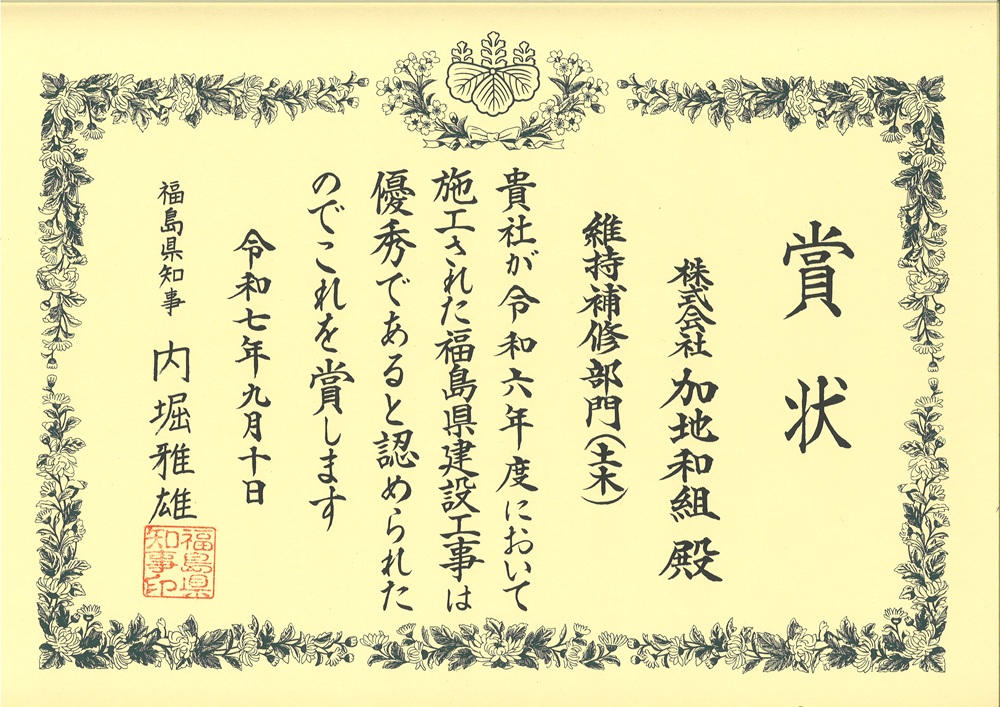 賞状
株式会社 加地和組 殿
維持補修部門(土木)
貴社が令和六年度において
施工された福島県建設工事は
優秀であると認められた
のでこれを賞します
令和七年九月十日
福島県知事 内堀雅雄
福島県
知事印